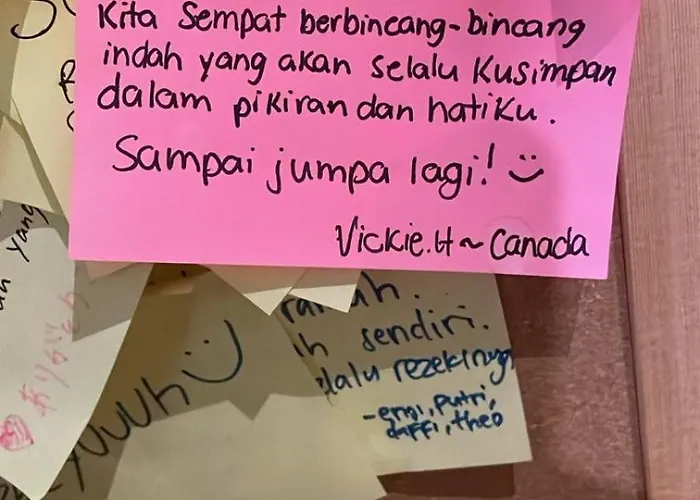 Kita Sempat berbincang-bincang
indah yang akan selalu Kusimpan
dalam pikiran dan hatiku.
Sampai jumpa lagi!
Vickie.H ~ Canada
yang
ありがとう
sendiri.
rezekinya
-erni, putri,
daffi, theo